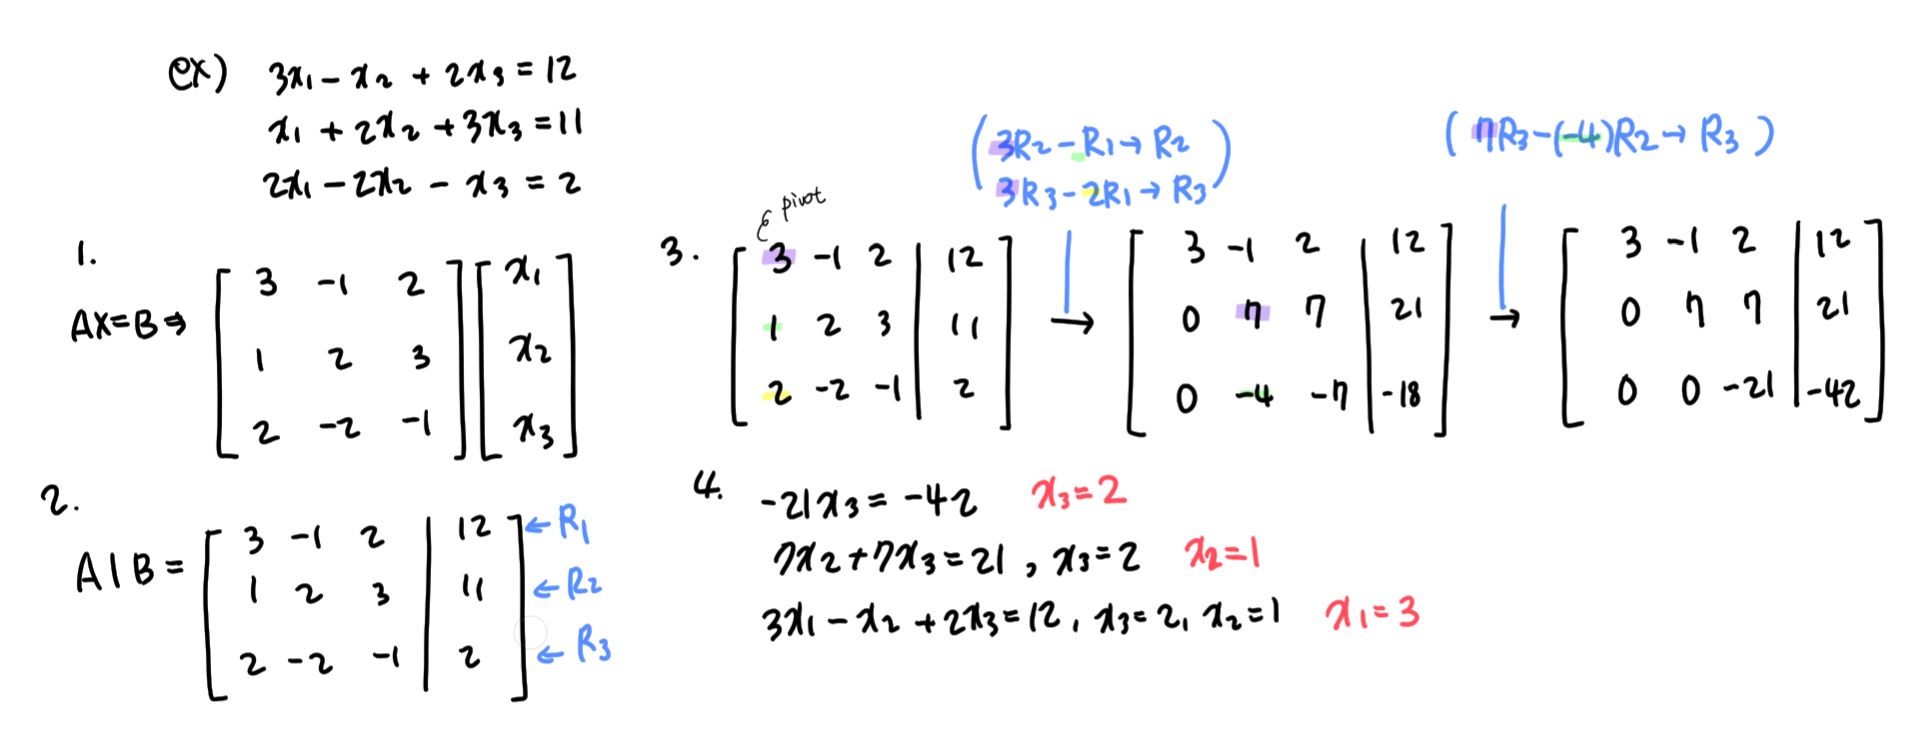 ex) 3x₁ - x₂ + 2x₃ = 12
x₁ + 2x₂ + 3x₃ = 11
2x₁ - 2x₂ - x₃ = 2
1.
AX=B ⇒ [ 3 -1 2 ] [ x₁ ]
[ 1 2 3 ] [ x₂ ]
[ 2 -2 -1 ] [ x₃ ]
2.
A|B = [ 3 -1 2 | 12 ] ← R₁
[ 1 2 3 | 11 ] ← R₂
[ 2 -2 -1 | 2 ] ← R₃
3.
pivot
[ 3 -1 2 | 12 ]
[ 1 2 3 | 11 ]
[ 2 -2 -1 | 2 ]
→
( 3R₂ - R₁ → R₂
3R₃ - 2R₁ → R₃ )
[ 3 -1 2 | 12 ]
[ 0 7 7 | 21 ]
[ 0 -4 -7 | -18 ]
→
( 7R₃ - (-4)R₂ → R₃ )
[ 3 -1 2 | 12 ]
[ 0 7 7 | 21 ]
[ 0 0 -21 | -42 ]
4. -21x₃ = -42 x₃ = 2
7x₂ + 7x₃ = 21 , x₃ = 2 x₂ = 1
3x₁ - x₂ + 2x₃ = 12, x₃ = 2, x₂ = 1 x₁ = 3